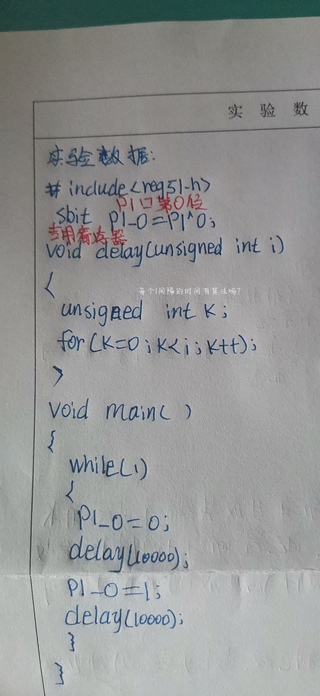 实验数
实验数据:
# include<reg51-h>
P1口第0位
sbit P1-0=P1^0;
void delay(unsigned int i)
{
每个1间隔的时间有算法吗?
unsigned int k;
for(k=0;k<i;k++);
}
void main( )
{
while(1)
{
P1_0=0;
delay(10000);
P1_0=1;
delay(10000);
}
}